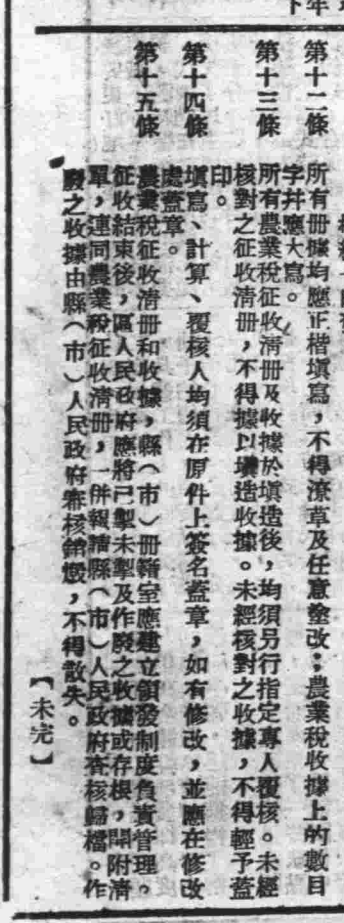 第十二條　所有册據均應正楷填寫，不得潦草及任意塗改；農業稅收據上的數目
字幷應大寫。
第十三條　所有農業稅征收淸册及收據於塡造後，均須另行指定專人覆核。未經
核對之征收淸册，不得據以塡造收據。未經核對之收據，不得輕予蓋
印。
第十四條　塡寫、計算、覆核人均須在原件上簽名蓋章，如有修改，並應在修改
處蓋章。
第十五條　農業稅征收淸册和收據，縣（市）册籍室應建立領發制度負責管理。
征收結束後，區人民政府應將已掣未掣及作廢之收據或存根，開附淸
單，連同農業稅征收淸册，一併報請縣（市）人民政府查核歸檔。作
廢之收據由縣（市）人民政府審核銷燬，不得散失。
【未完】